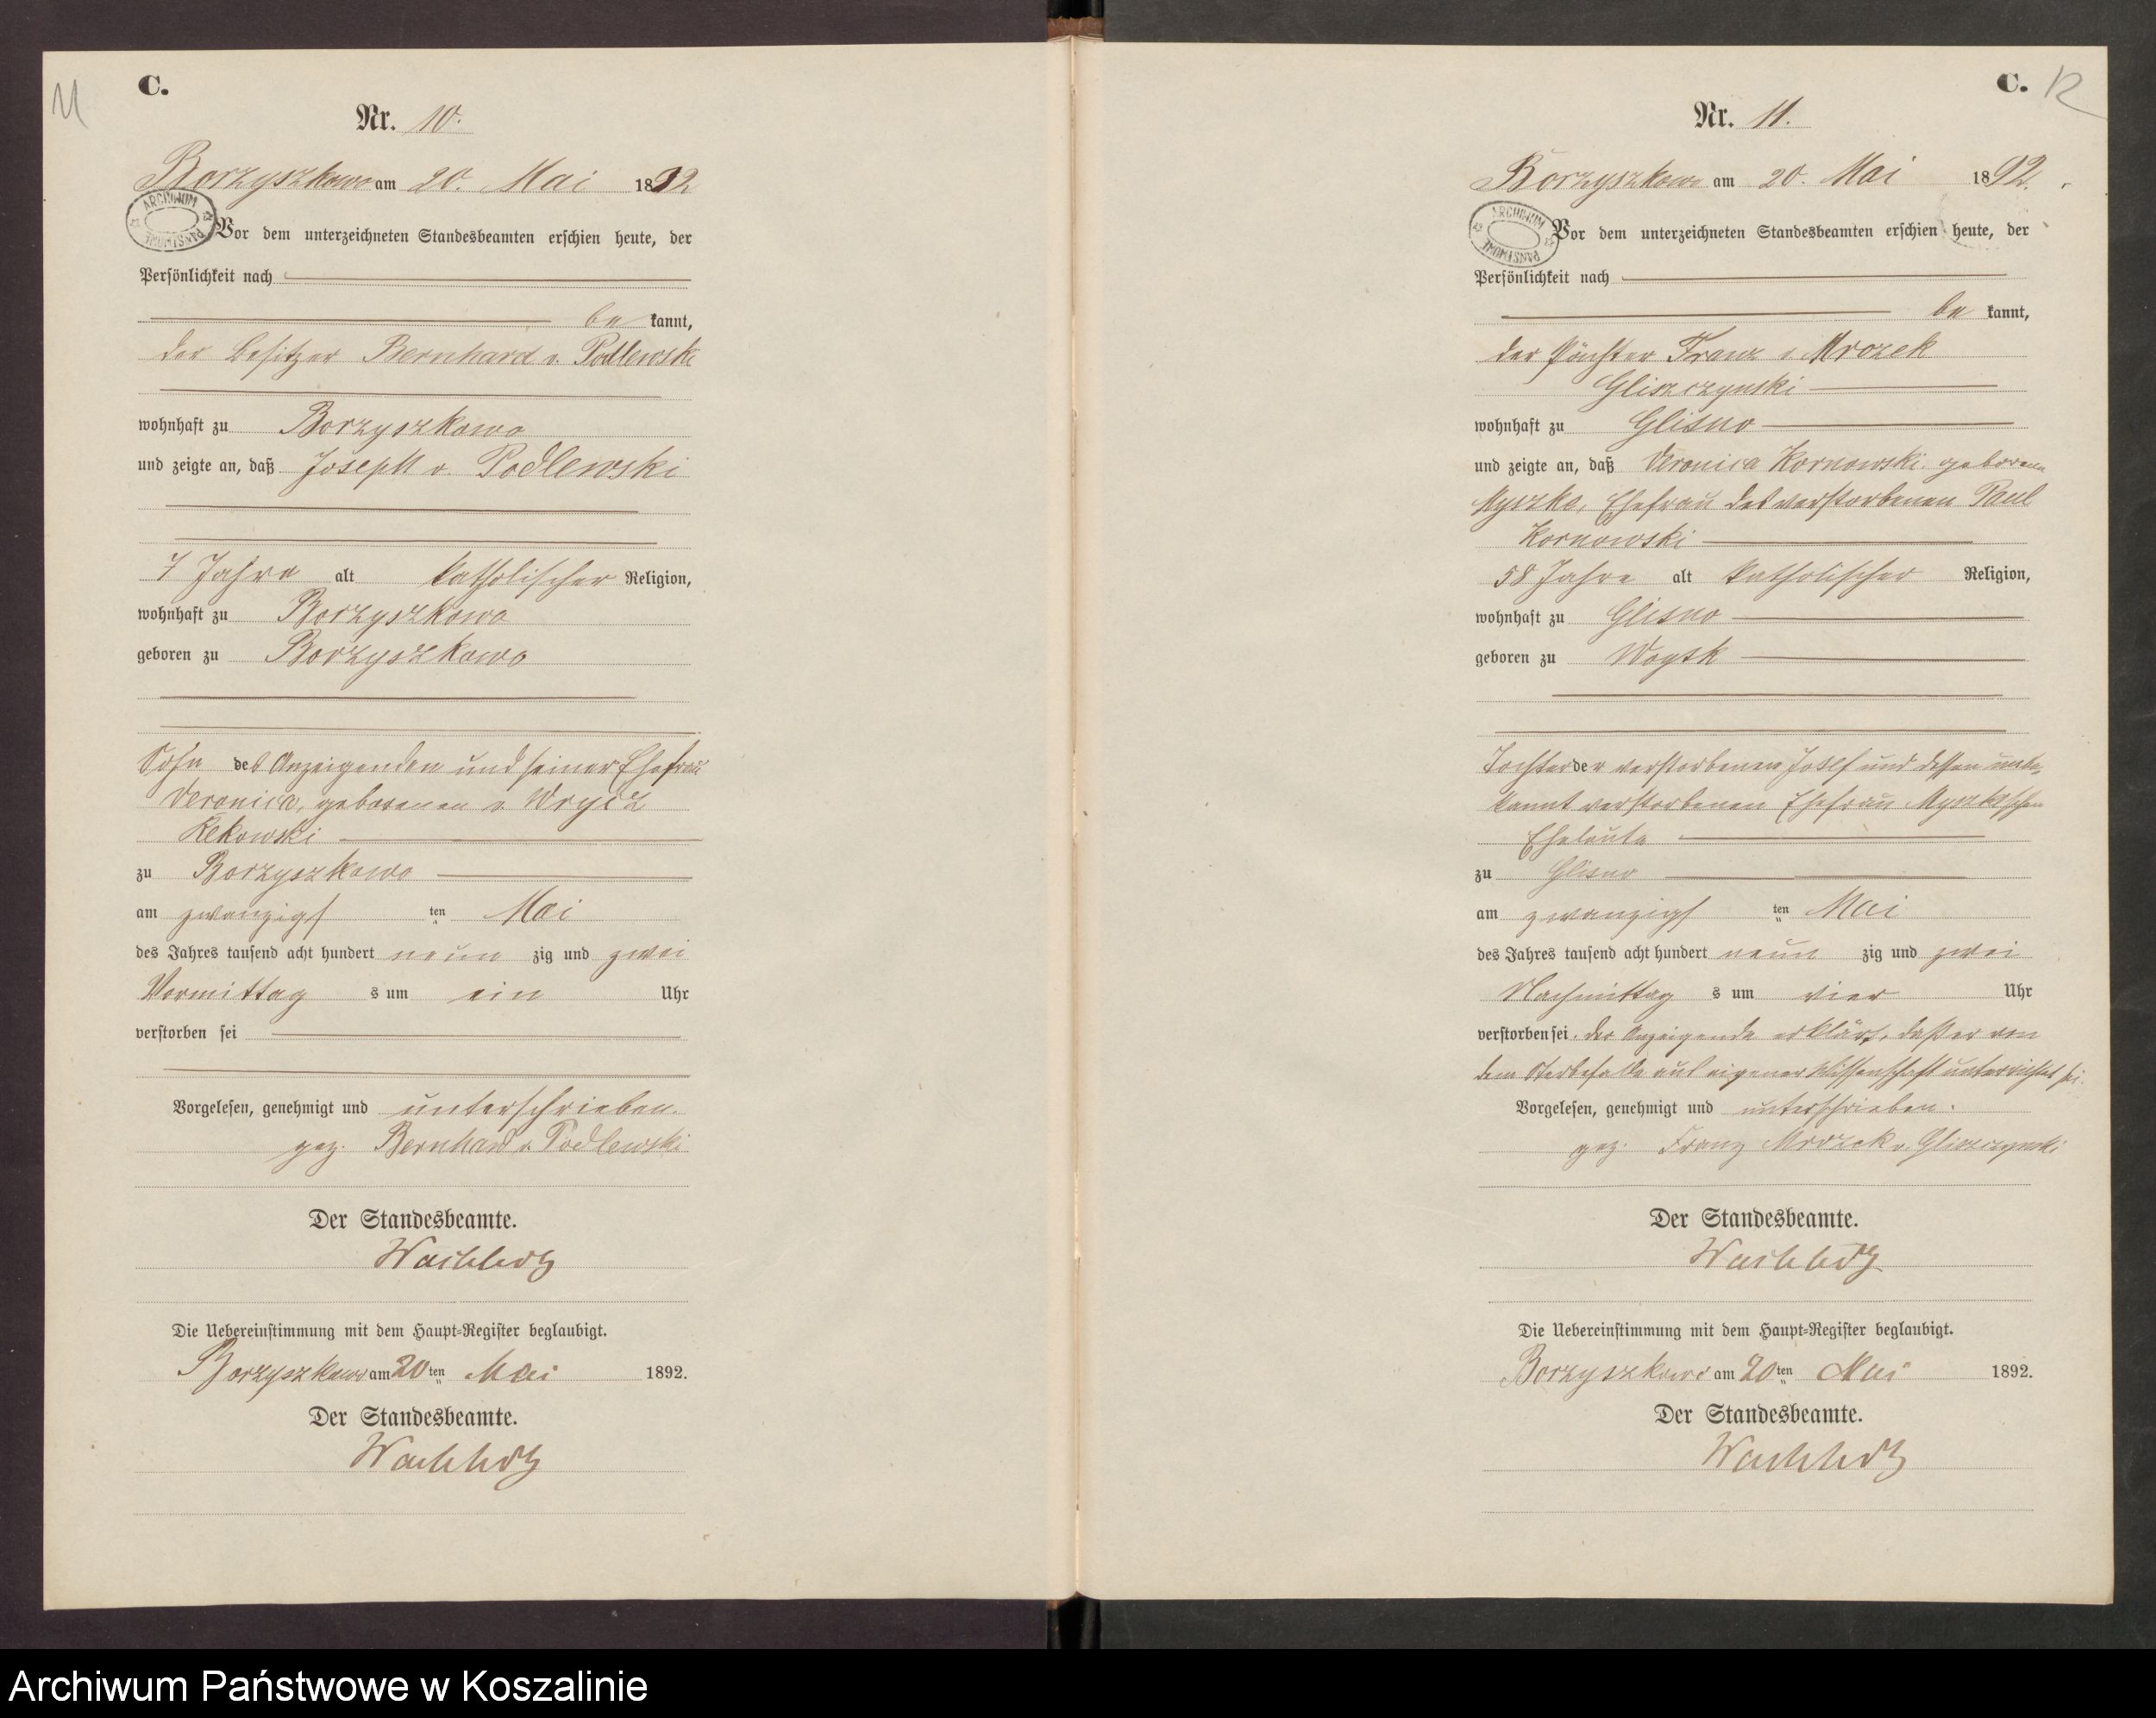 11
C.
Nr. 10.
Borzyszkowo am 20. Mai 1892
ARCHIWUM PAŃSTWOWE
Vor dem unterzeichneten Standesbeamten erschien heute, der
Persönlichkeit nach
be kannt,
der Besitzer Bernhard v. Podlewski
wohnhaft zu Borzyszkowo
und zeigte an, daß Joseph v. Podlewski
7 Jahre alt katholischer Religion,
wohnhaft zu Borzyszkowo
geboren zu Borzyszkowo
Sohn des Anzeigenden und seiner Ehefrau
Veronica, geborenen v. Wrycz
Rekowski
zu Borzyszkowo
am zwanzigs ten Mai
des Jahres tausend acht hundert neun zig und zwei
Vormittag s um ein Uhr
verstorben sei
Vorgelesen, genehmigt und unterschrieben.
gez. Bernhard v. Podlewski
Der Standesbeamte.
Wachholz
Die Uebereinstimmung mit dem Haupt-Register beglaubigt.
Borzyszkowo am 20 ten Mai 1892.
Der Standesbeamte.
Wachholz
C. 12
Nr. 11.
Borzyszkowo am 20. Mai 1892.
ARCHIWUM PAŃSTWOWE
Vor dem unterzeichneten Standesbeamten erschien heute, der
Persönlichkeit nach
be kannt,
der Pächter Franz v. Mrozek
Gliszczynski
wohnhaft zu Glisno
und zeigte an, daß Veronica Kornowski geborene
Myszka, Ehefrau des verstorbenen Paul
Kornowski
58 Jahre alt katholischer Religion,
wohnhaft zu Glisno
geboren zu Woysk
Tochter der verstorbenen Josef und dessen unbe-
kannt verstorbenen Ehefrau Myszka'schen
Eheleute
zu Glisno
am zwanzigs ten Mai
des Jahres tausend acht hundert neun zig und zwei
Nachmittag s um vier Uhr
verstorben sei. Der Anzeigende erklärt, daß er von
dem Sterbefalle aus eigener Wissenschaft unterrichtet sei.
Vorgelesen, genehmigt und unterschrieben.
gez. Franz Mrozek v. Gliszczynski
Der Standesbeamte.
Wachholz
Die Uebereinstimmung mit dem Haupt-Register beglaubigt.
Borzyszkowo am 20 ten Mai 1892.
Der Standesbeamte.
Wachholz
Archiwum Państwowe w Koszalinie